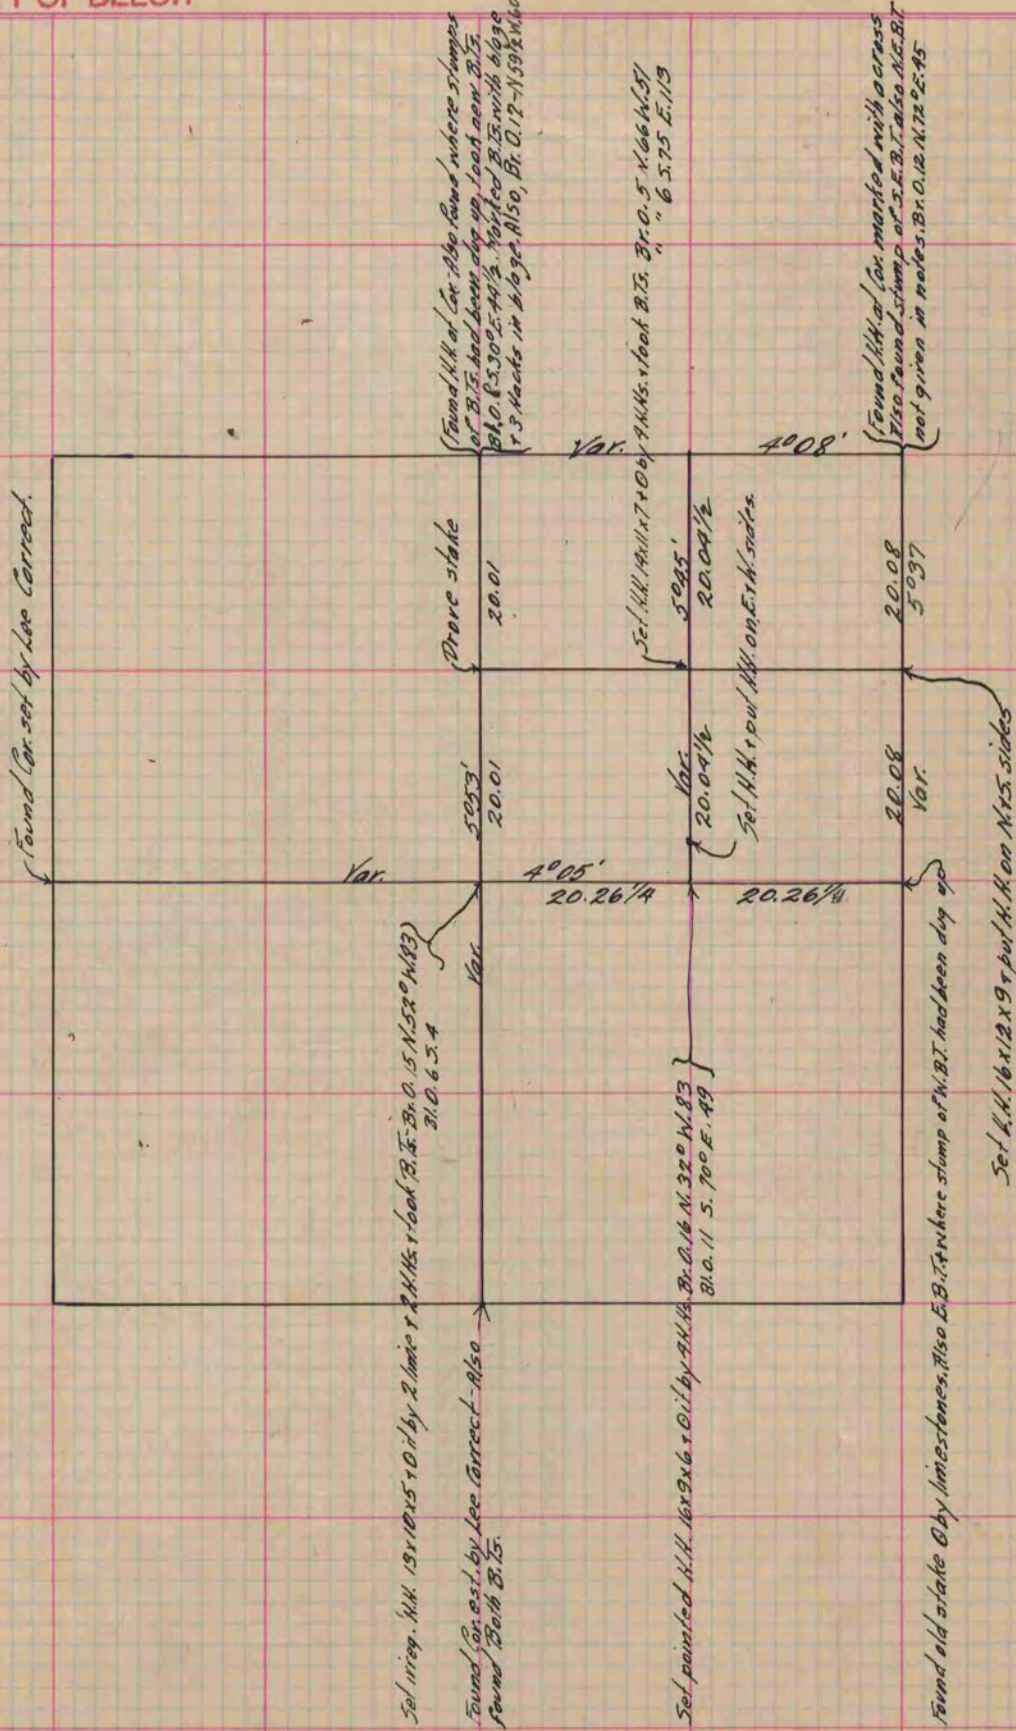 Found Cor. set by Lee Correct.
Found H.H. at Cor. Also found where stumps
of B.Ts. had been dug up, took new B.Ts.
Bl.O. 8 S.30°E.44½. Marked B.Ts. with blaze
+ 3 Hacks in blaze. Also, Br. O.12-N59½W.60
Set H.H. 14x11x7 + O by 4 H.Hs. + took B.Ts. Br.O.5 N.66 W.51
" " 6 S.75 E.113
Found H.H. at Cor. marked with a cross
Also found stump of S.E.B.T. also N.E.B.T.
not given in notes. Br.O.12.N.72°E.45
Var. 4°08'
Drove stake
20.01
5°45'
20.04½
20.08
5°37
5°53'
20.01
Var.
20.04½
Set H.H. + put H.H. on E.+W. sides.
20.08
Var.
Var.
4°05'
20.26¼
20.26¼
Var.
Set irreg. H.H. 13x10x5 + O it by 2 lime + 2 H.Hs. + took B.Ts.-Br.O.15 N.52° W.83
Bl.O.6 S.4
Found Cor. est. by Lee Correct - Also
found Both B.Ts.
Set pointed H.H. 16x9x6 + O it by 4 H.Hs. Br.O.16 N.32° W.83
Bl.O.11 S.70° E.49
Found old stake O by limestones. Also E.B.T. + where stump of W.B.T. had been dug up
Set H.H. 16x12x9 + put H.H. on N.+S. sides